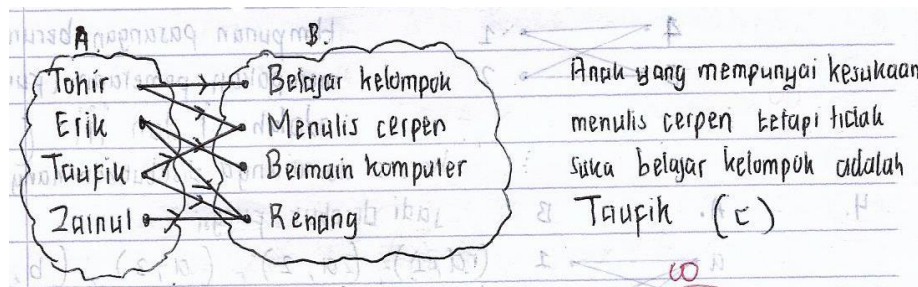 A.
B.
Tohir
Erik
Taufik
Zainul
Belajar kelompok
Menulis cerpen
Bermain komputer
Renang
Anak yang mempunyai kesukaan
menulis cerpen tetapi tidak
suka belajar kelompok adalah
Taufik (c)
10